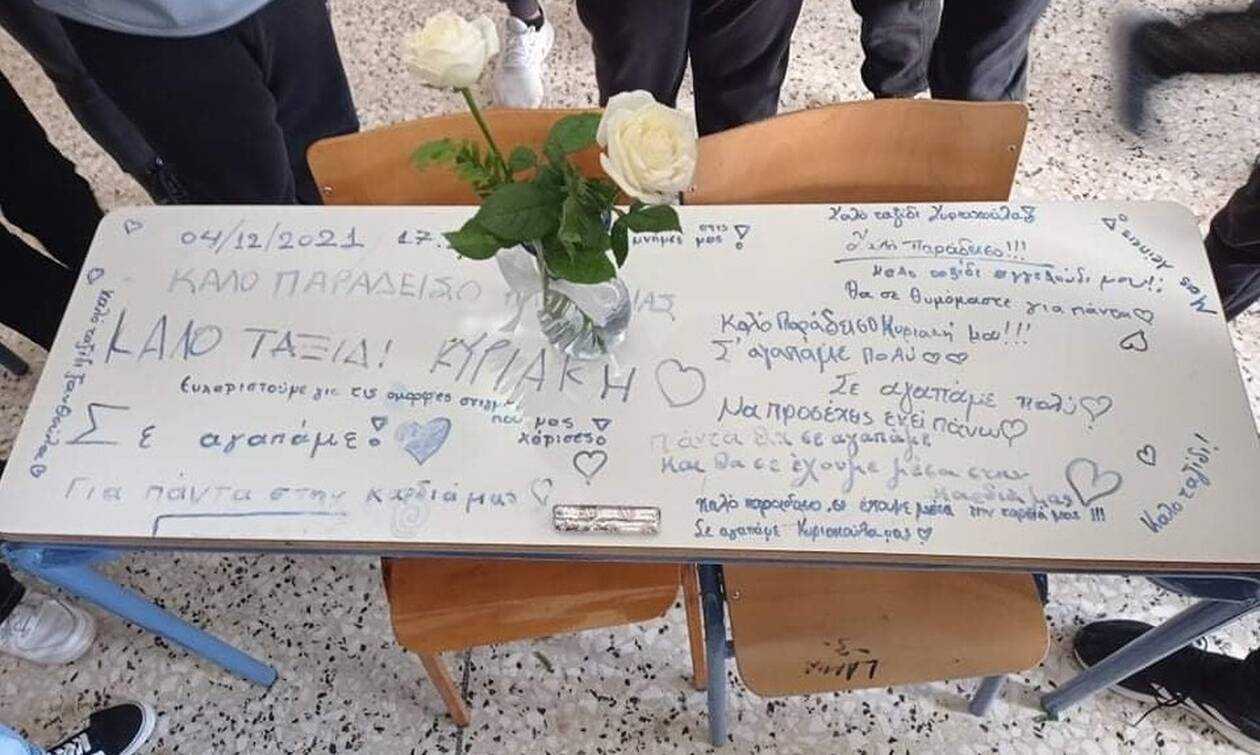 04/12/2021 17.
ΚΑΛΟ ΠΑΡΑΔΕΙΣΟ
ΚΑΛΟ ΤΑΞΙΔΙ! ΚΥΡΙΑΚΗ
Ευχαριστούμε για τις ομορφες στιγμ
που μας
χάρισες
Σε αγαπάμε!
Για πάντα στην καρδιά μας
στις
μνήμες μας!
Καλό ταξίδι Κυριακούλα
Παράδεισο!!!
Καλο ταξίδι αγγελούδι μου!!
Θα σε θυμόμαστε για πάντα
Καλό Παράδεισο Κυριακή μου!!!
Σ' αγαπάμε πολύ
Σε αγαπάμε πολύ
Να προσέχεις εκεί πάνω
Πάντα θα σε αγαπάμε
και θα σε έχουμε μέσα στην
καρδιά μας
Καλό παράδεισο, σε έχουμε μέσα την καρδιά μας!!!
Σε αγαπάμε Κυριακούλα μας
Μας λείπεις!
Καλό ταξίδι!
Καλό ταξίδι